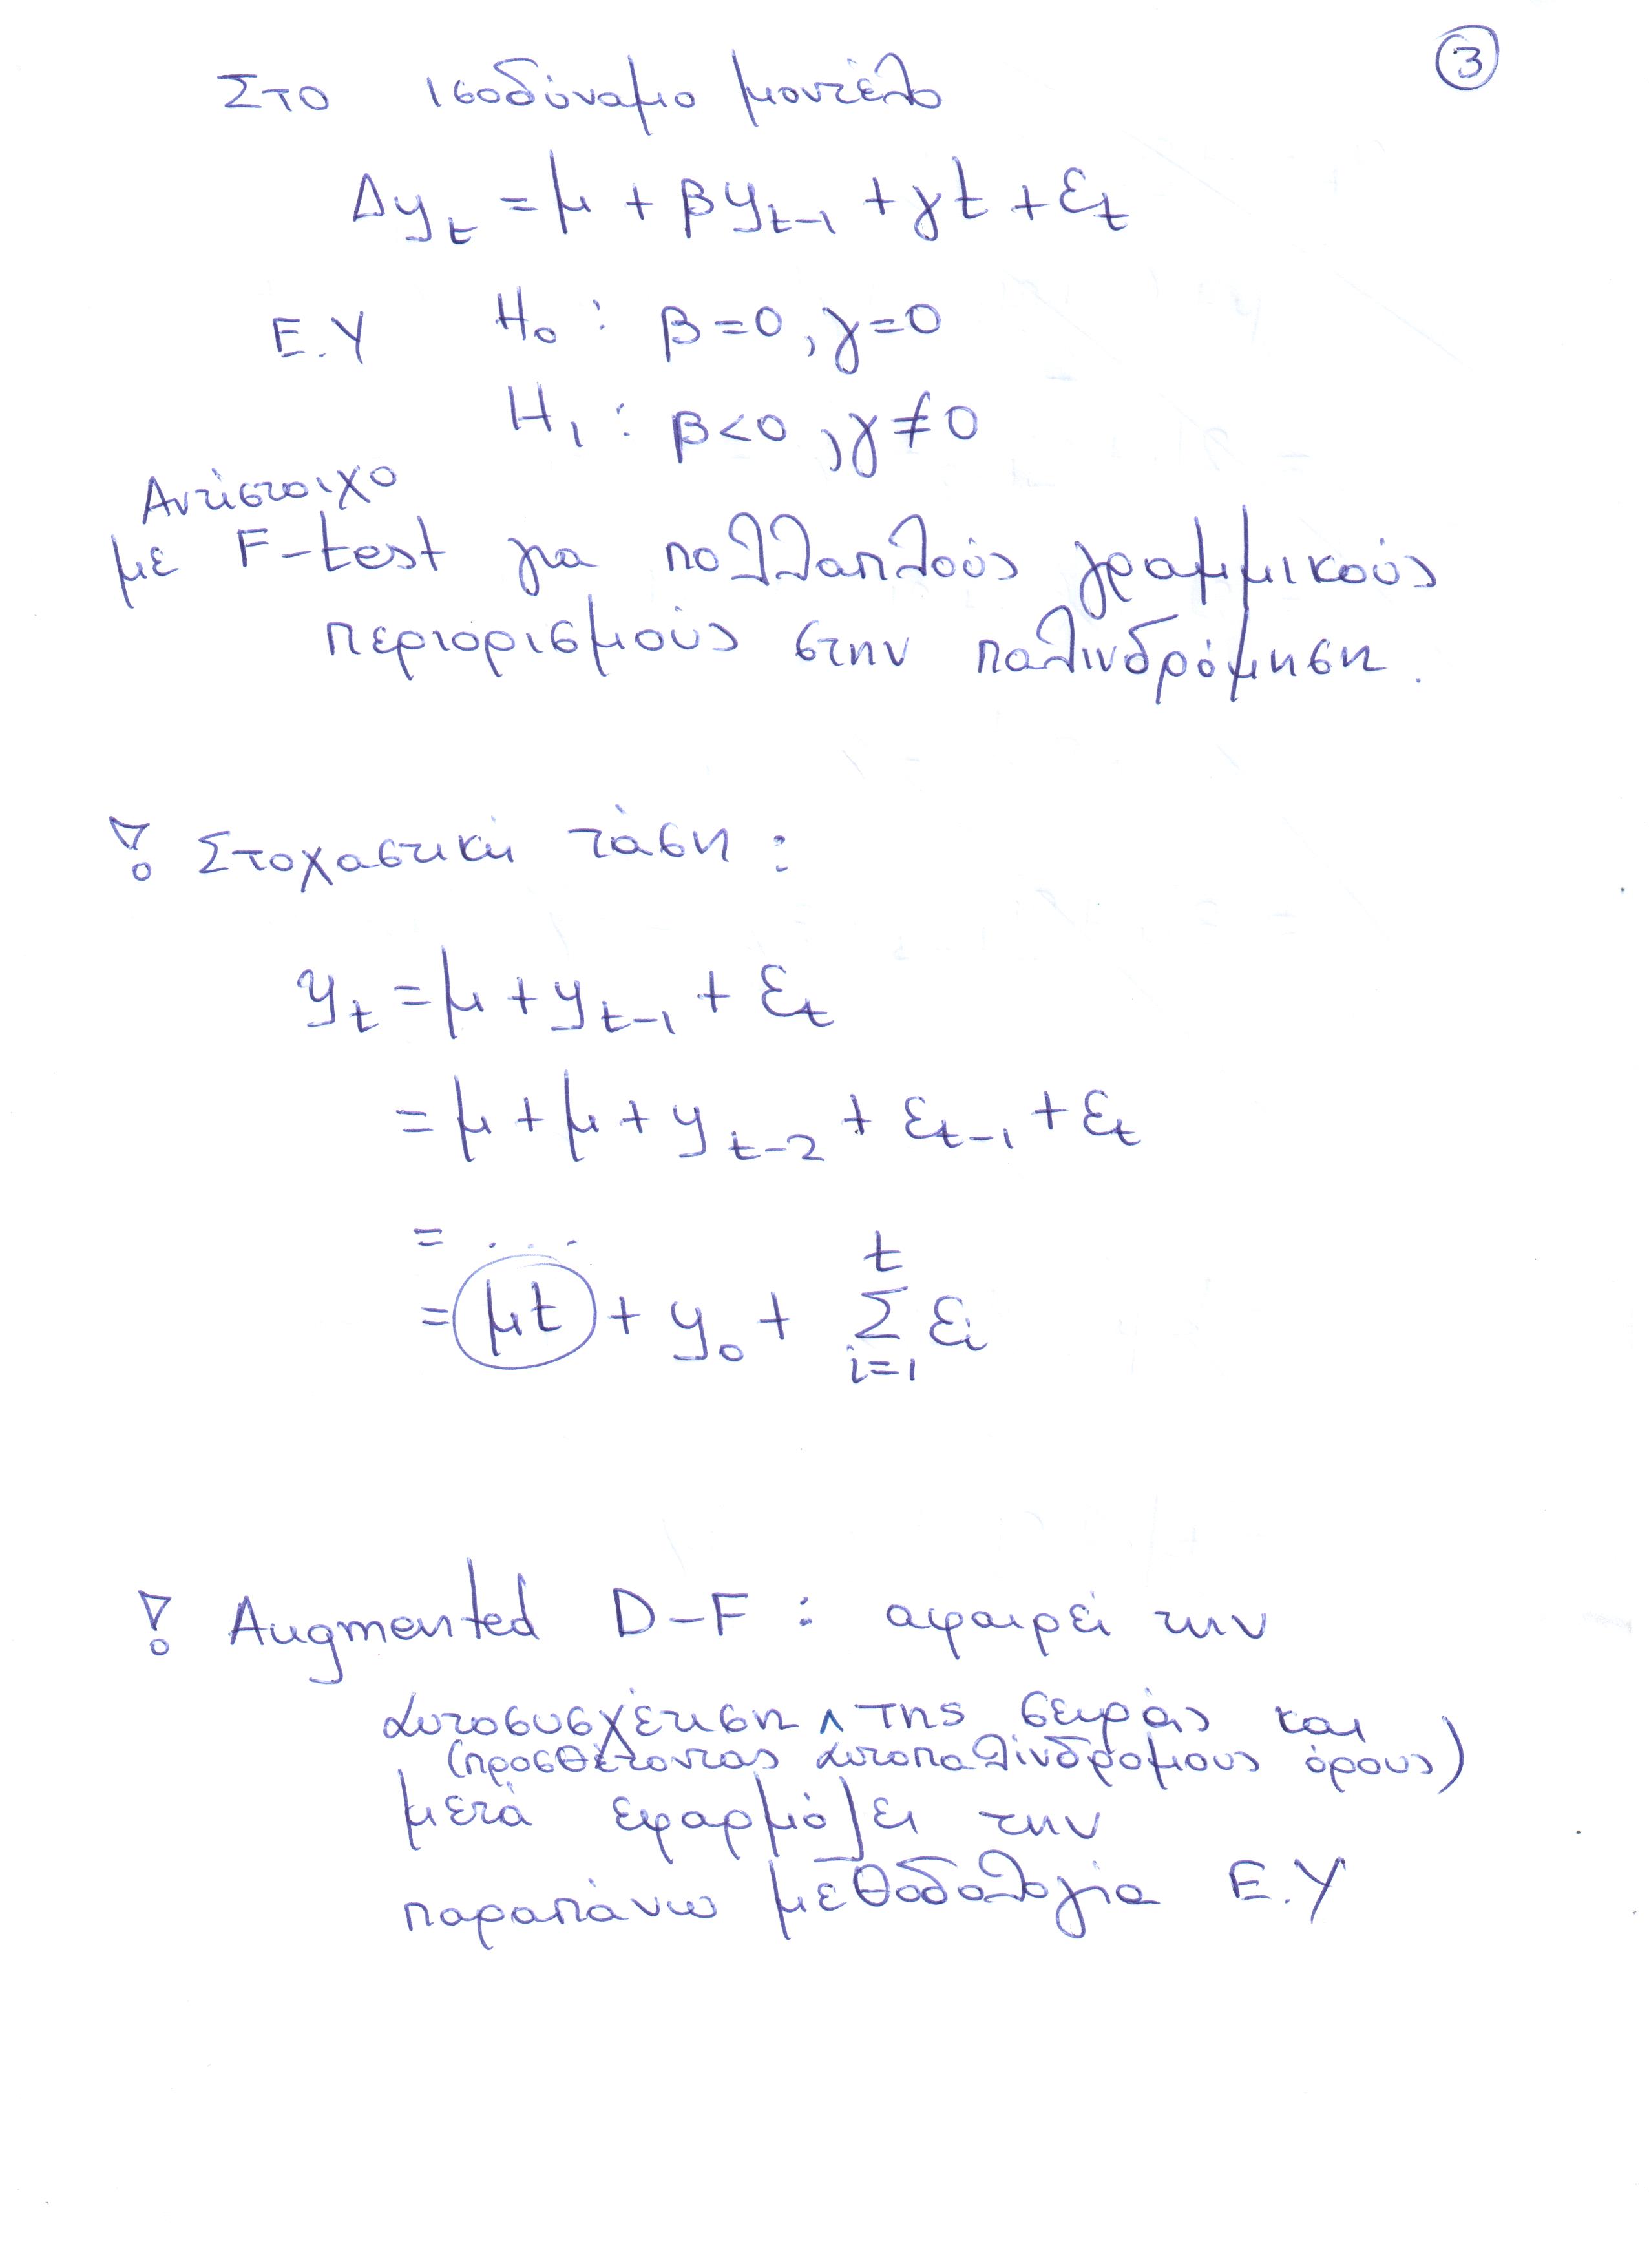 ③
Στο ισοδύναμο μοντέλο
Δy_t = μ + βy_{t-1} + γt + ε_t
Ε.Υ H_0 : β=0, γ=0
H_1 : β<0, γ≠0
Αντίστοιχο
με F-test για πολλαπλούς γραμμικούς
περιορισμούς στην παλινδρόμηση.
! Στοχαστική τάση :
y_t = μ + y_{t-1} + ε_t
= μ + μ + y_{t-2} + ε_{t-1} + ε_t
= ...
= μt + y_0 + Σ_{i=1}^{t} ε_i
! Augmented D-F : αφαιρεί την
αυτοσυσχέτιση ^ της σειράς και
(προσθέτοντας αυτοπαλίνδρομους όρους)
μετά εφαρμόζει την
παραπάνω μεθοδολογία Ε.Υ